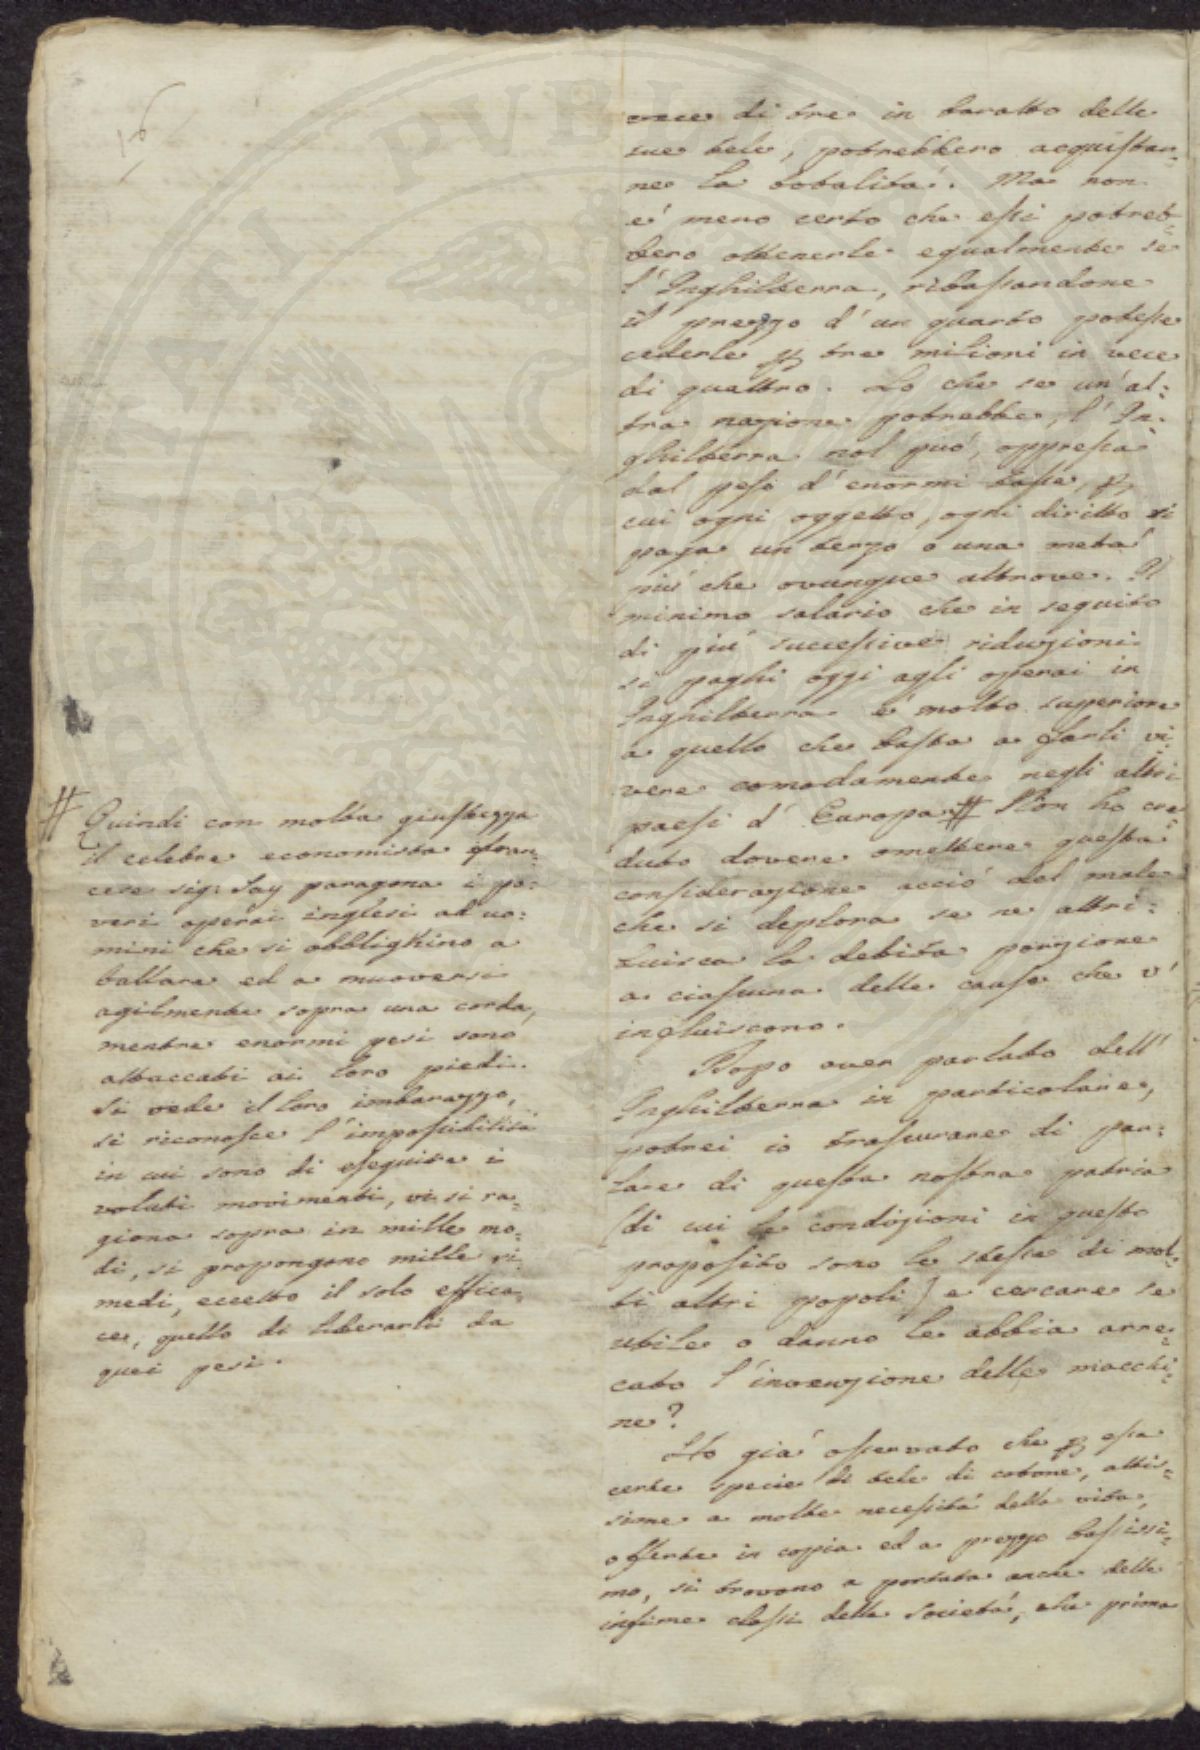 16
vece di tre in baratto delle
sue tele, potrebbero acquistar-
ne la totalità. Ma non
è meno certo che essi potreb-
bero ottenerle egualmente se
l'Inghilterra, ribassandone
il prezzo d'un quarto potesse
cederle per tre milioni in vece
di quattro. Lo che se un'al-
tra nazione potrebbe, l'In-
ghilterra nol può, oppressa
dal peso d'enormi tasse, per
cui ogni oggetto, ogni diritto si
paga un terzo o una metà
più che ovunque altrove. Il
minimo salario che in seguito
di più successive riduzioni
si paghi oggi agli operai in
Inghilterra è molto superiore
a quello che basta a farli vi-
vere comodamente negli altri
paesi d'Europa. # Non ho cre-
duto dovere omettere questa
considerazione acciò del male
che si deplora se ne attri-
buisca la debita porzione
a ciascuna delle cause che v'
influiscono.
Dopo aver parlato dell'
Inghilterra in particolare,
potrei io trascurare di par-
lare di questa nostra patria
(di cui le condizioni in questo
proposito sono le stesse di mol-
ti altri popoli) e cercare se
utile o danno le abbia arre-
cato l'invenzione delle macchi-
ne?
Ho già osservato che per essa
certe specie di tele di cotone, attis-
sime a molte necessità della vita,
offerte in copia ed a prezzo bassissi-
mo, si trovano a portata anche delle
infime classi della società, che prima
# Quindi con molta giustezza
il celebre economista fran-
cese sig. Say paragona i po-
veri operai inglesi ad uo-
mini che si obblighino a
ballare ed a muoversi
agilmente sopra una corda,
mentre enormi pesi sono
attaccati ai loro piedi.
Si vede il loro imbarazzo,
si riconosce l'impossibilità
in cui sono di eseguire i
voluti movimenti, vi si ra-
giona sopra in mille mo-
di, si propongono mille ri-
medi, eccetto il solo effica-
ce, quello di liberarli da
quei pesi.